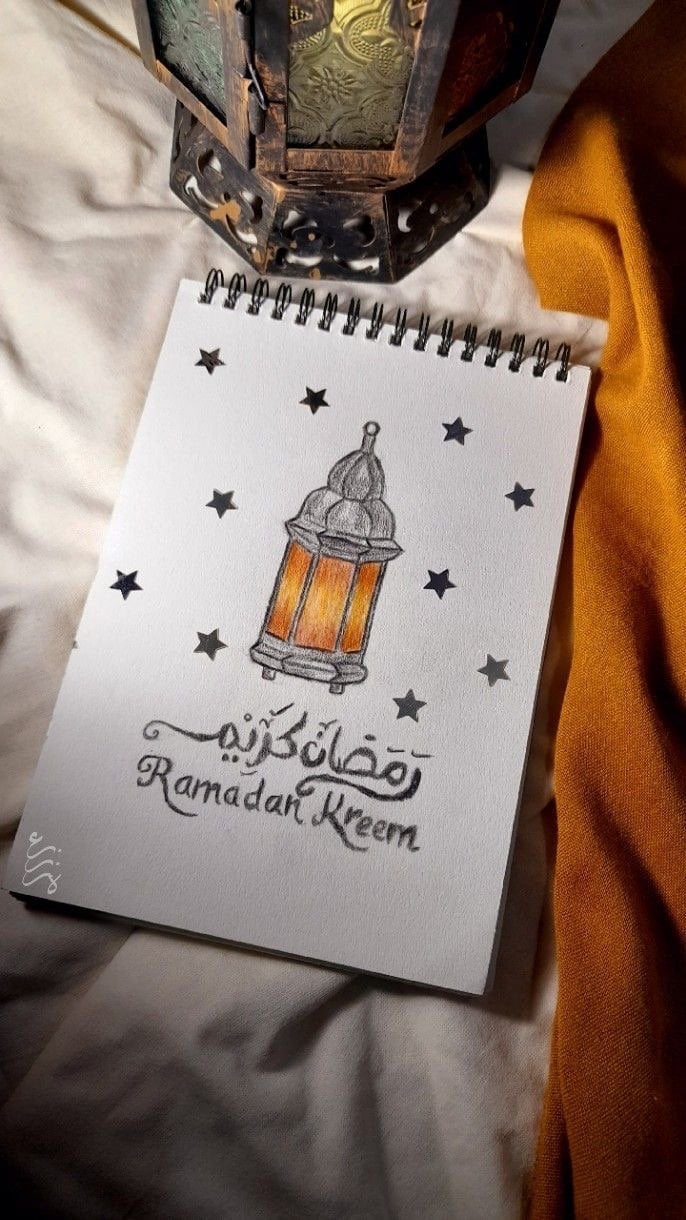 رمضان كريم
Ramadan Kreem